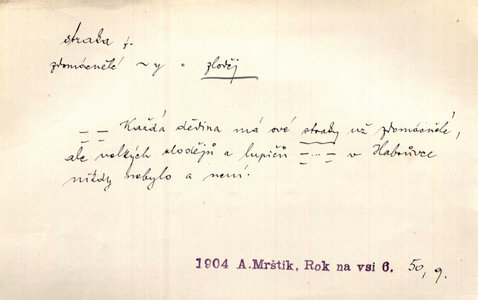 straka f.
zdomácnělé ~y = zloděj
= = Každá dědina má své straky už zdomácnělé,
ale velkých zlodějů a lupičů =...= v Habrůvce
nikdy nebylo a není.
1904 A.Mrštík, Rok na vsi 6. 50, 9.